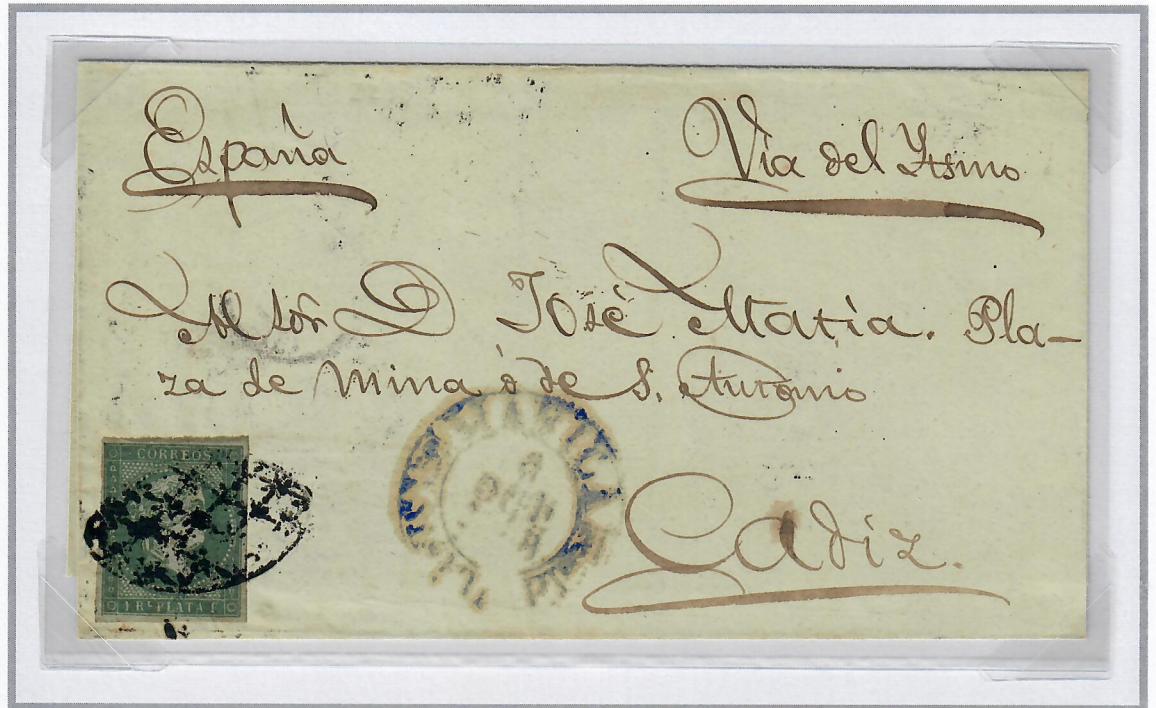 España
Via del Ytsmo
Al Sõr D José Matia. Pla-
za de Mina ó de S. Antonio
Cadiz.
CORREOS
1 Rˡ PLATA F
MANILA
JUN